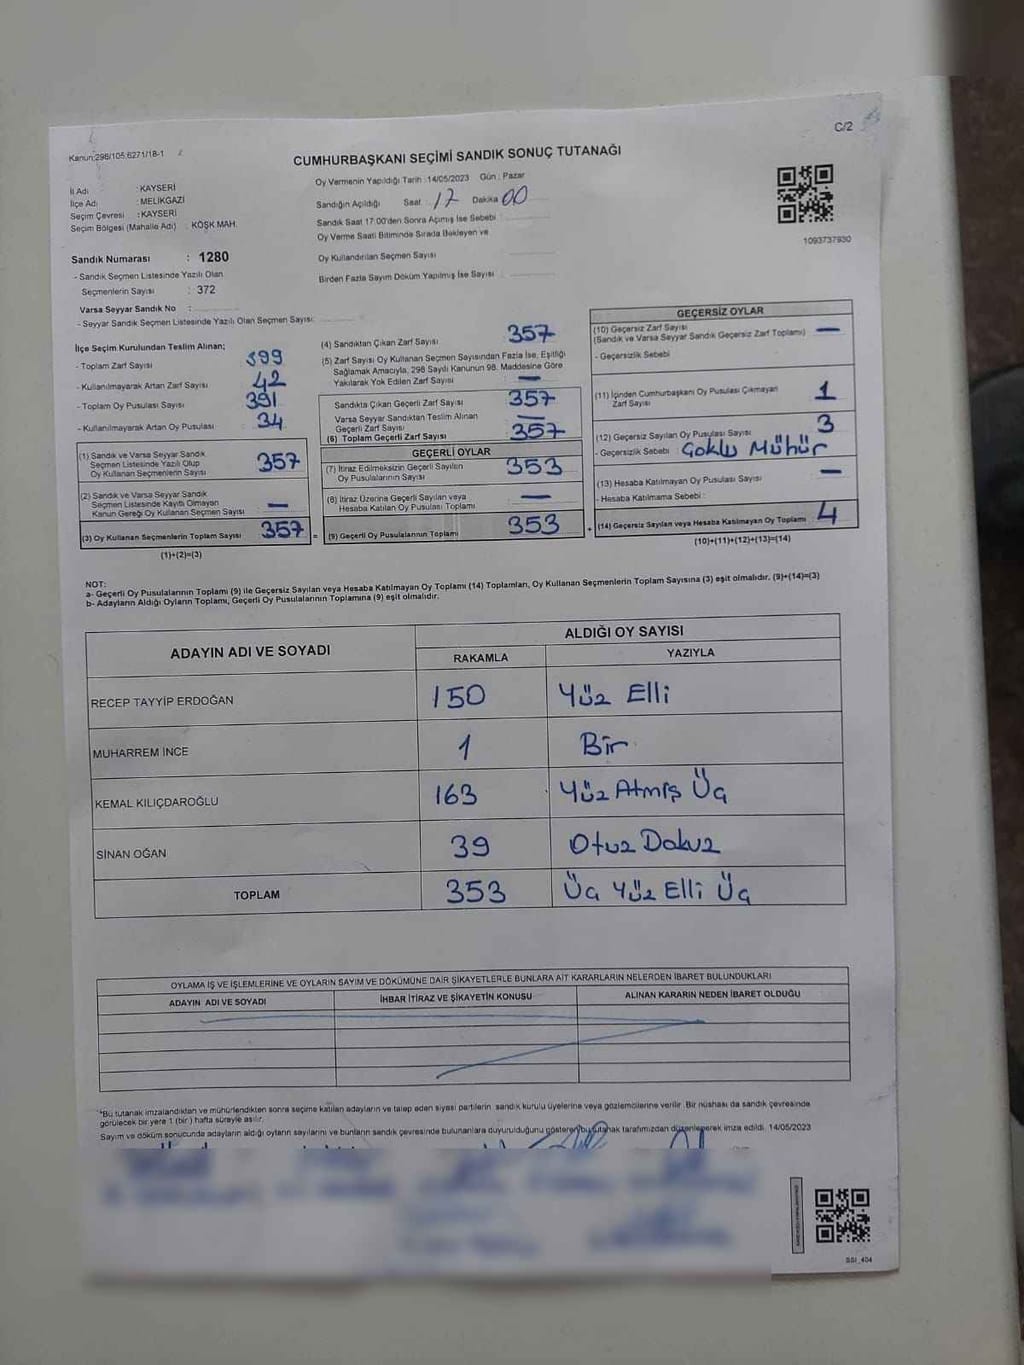 C/2
Kanun:298/105.6271/18-1
CUMHURBAŞKANI SEÇİMİ SANDIK SONUÇ TUTANAĞI
İl Adı : KAYSERİ
İlçe Adı : MELİKGAZİ
Seçim Çevresi : KAYSERİ
Seçim Bölgesi (Mahalle Adı) : KÖŞK MAH.
Oy Vermenin Yapıldığı Tarih : 14/05/2023 Gün : Pazar
Sandığın Açıldığı Saat : 17 Dakika 00
Sandık Saat 17:00'den Sonra Açımış İse Sebebi :
Oy Verme Saati Bitiminde Sırada Bekleyen ve
Oy Kullandırılan Seçmen Sayısı
Birden Fazla Sayım Döküm Yapılmış İse Sayısı
1093737930
Sandık Numarası : 1280
- Sandık Seçmen Listesinde Yazılı Olan
Seçmenlerin Sayısı : 372
Varsa Seyyar Sandık No :
- Seyyar Sandık Seçmen Listesinde Yazılı Olan Seçmen Sayısı:
İlçe Seçim Kurulundan Teslim Alınan;
- Toplam Zarf Sayısı 399
- Kullanılmayarak Artan Zarf Sayısı 42
- Toplam Oy Pusulası Sayısı 391
- Kullanılmayarak Artan Oy Pusulası 34
(1) Sandık ve Varsa Seyyar Sandık
Seçmen Listesinde Yazılı Olup
Oy Kullanan Seçmenlerin Sayısı 357
(2) Sandık ve Varsa Seyyar Sandık
Seçmen Listesinde Kayıtlı Olmayan
Kanun Gereği Oy Kullanan Seçmen Sayısı —
(3) Oy Kullanan Seçmenlerin Toplam Sayısı 357 =
(1)+(2)=(3)
(4) Sandıktan Çıkan Zarf Sayısı 357
(5) Zarf Sayısı Oy Kullanan Seçmen Sayısından Fazla İse, Eşitliği
Sağlamak Amacıyla, 298 Sayılı Kanunun 98. Maddesine Göre
Yakılarak Yok Edilen Zarf Sayısı —
Sandıkta Çıkan Geçerli Zarf Sayısı 357
Varsa Seyyar Sandıktan Teslim Alınan
Geçerli Zarf Sayısı —
(6) Toplam Geçerli Zarf Sayısı 357
GEÇERLİ OYLAR
(7) İtiraz Edilmeksizin Geçerli Sayılan
Oy Pusulalarının Sayısı 353
(8) İtiraz Üzerine Geçerli Sayılan veya
Hesaba Katılan Oy Pusulası Toplamı —
(9) Geçerli Oy Pusulalarının Toplamı 353 +
GEÇERSİZ OYLAR
(10) Geçersiz Zarf Sayısı —
(Sandık ve Varsa Seyyar Sandık Geçersiz Zarf Toplamı)
- Geçersizlik Sebebi
(11) İçinden Cumhurbaşkanı Oy Pusulası Çıkmayan
Zarf Sayısı 1
(12) Geçersiz Sayılan Oy Pusulası Sayısı 3
- Geçersizlik Sebebi : Çoklu Mühür
(13) Hesaba Katılmayan Oy Pusulası Sayısı —
- Hesaba Katılmama Sebebi :
(14) Geçersiz Sayılan veya Hesaba Katılmayan Oy Toplamı 4
(10)+(11)+(12)+(13)=(14)
NOT:
a- Geçerli Oy Pusulalarının Toplamı (9) ile Geçersiz Sayılan veya Hesaba Katılmayan Oy Toplamı (14) Toplamları, Oy Kullanan Seçmenlerin Toplam Sayısına (3) eşit olmalıdır. (9)+(14)=(3)
b- Adayların Aldığı Oyların Toplamı, Geçerli Oy Pusulalarının Toplamına (9) eşit olmalıdır.
ADAYIN ADI VE SOYADI ALDIĞI OY SAYISI
RAKAMLA YAZIYLA
RECEP TAYYİP ERDOĞAN 150 Yüz Elli
MUHARREM İNCE 1 Bir
KEMAL KILIÇDAROĞLU 163 Yüz Atmış Üç
SİNAN OĞAN 39 Otuz Dokuz
TOPLAM 353 Üç Yüz Elli Üç
OYLAMA İŞ VE İŞLEMLERİNE VE OYLARIN SAYIM VE DÖKÜMÜNE DAİR ŞİKAYETLERLE BUNLARA AİT KARARLARIN NELERDEN İBARET BULUNDUKLARI
ADAYIN ADI VE SOYADI İHBAR İTİRAZ VE ŞİKAYETİN KONUSU ALINAN KARARIN NEDEN İBARET OLDUĞU
*Bu tutanak imzalandıktan ve mühürlendikten sonra seçime katılan adayların ve talep eden siyasi partilerin sandık kurulu üyelerine veya gözlemcilerine verilir. Bir nüshası da sandık çevresinde
görülecek bir yere 1 (bir) hafta süreyle asılır.
Sayım ve döküm sonucunda adayların aldığı oyların sayılarını ve bunların sandık çevresinde bulunanlara duyurulduğunu gösteren bu tutanak tarafımızdan düzenlenerek imza edildi. 14/05/2023
SSI_404